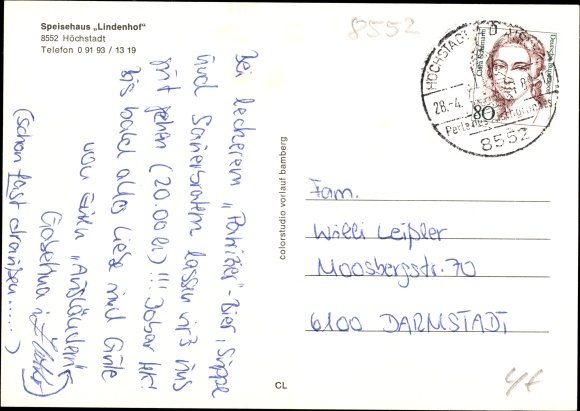 Speisehaus „Lindenhof"
8552 Höchstadt
Telefon 0 91 93 / 13 19
8552
HÖCHSTADT
28.-4.
8552
Deutsche Bundespost
Clara Schumann
80
Bei leckerem „Patrizier"-Bier, Suppe
und Sauerbraten lassen wir's uns
gut gehen (20.00 !!!
bis bald alles Liebe und Gute
von Euren „Ausländern"
(schon fast draußen.....)
colorstudio vorlauf bamberg
CL
Fam.
Willi Leißler
Moosbergstr. 70
6100 DARMSTADT